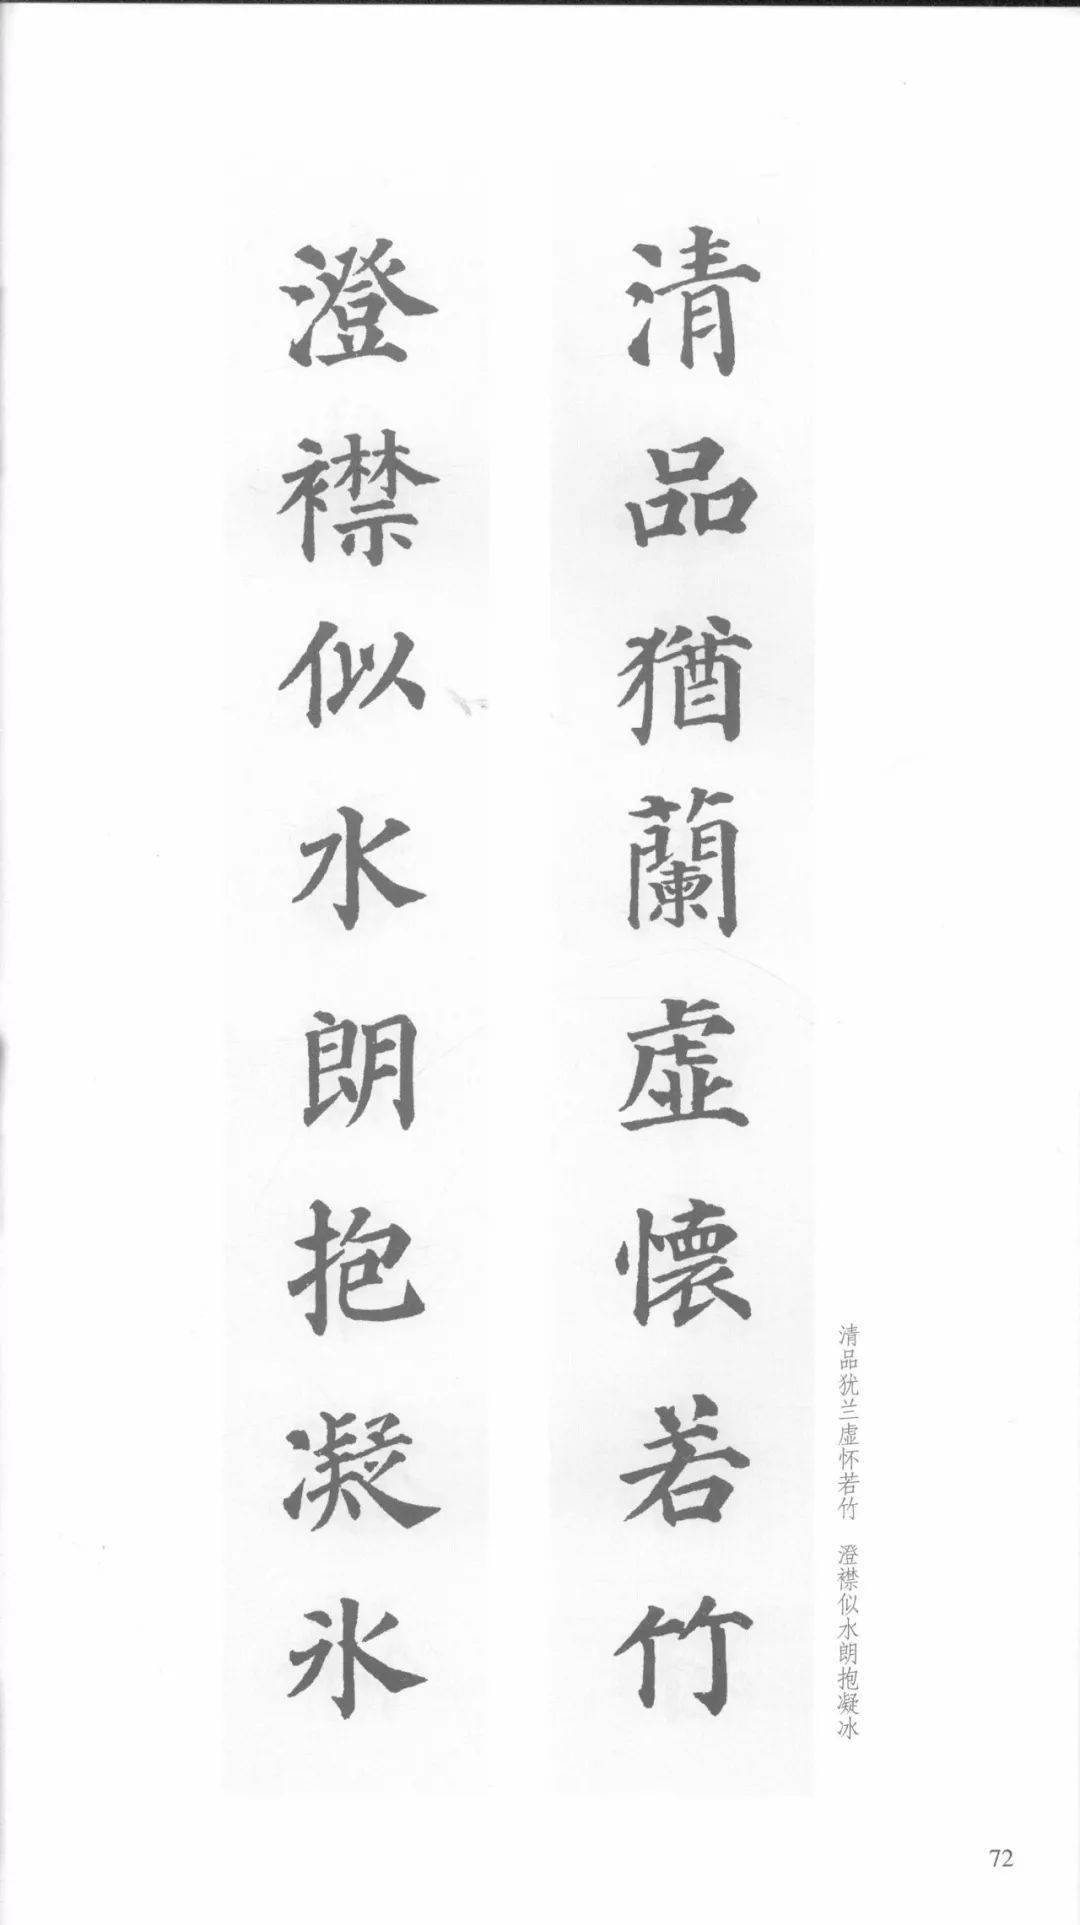 清品猶蘭虛懷若竹
澄襟似水朗抱凝氷
清品犹兰虚怀若竹　澄襟似水朗抱凝冰
72